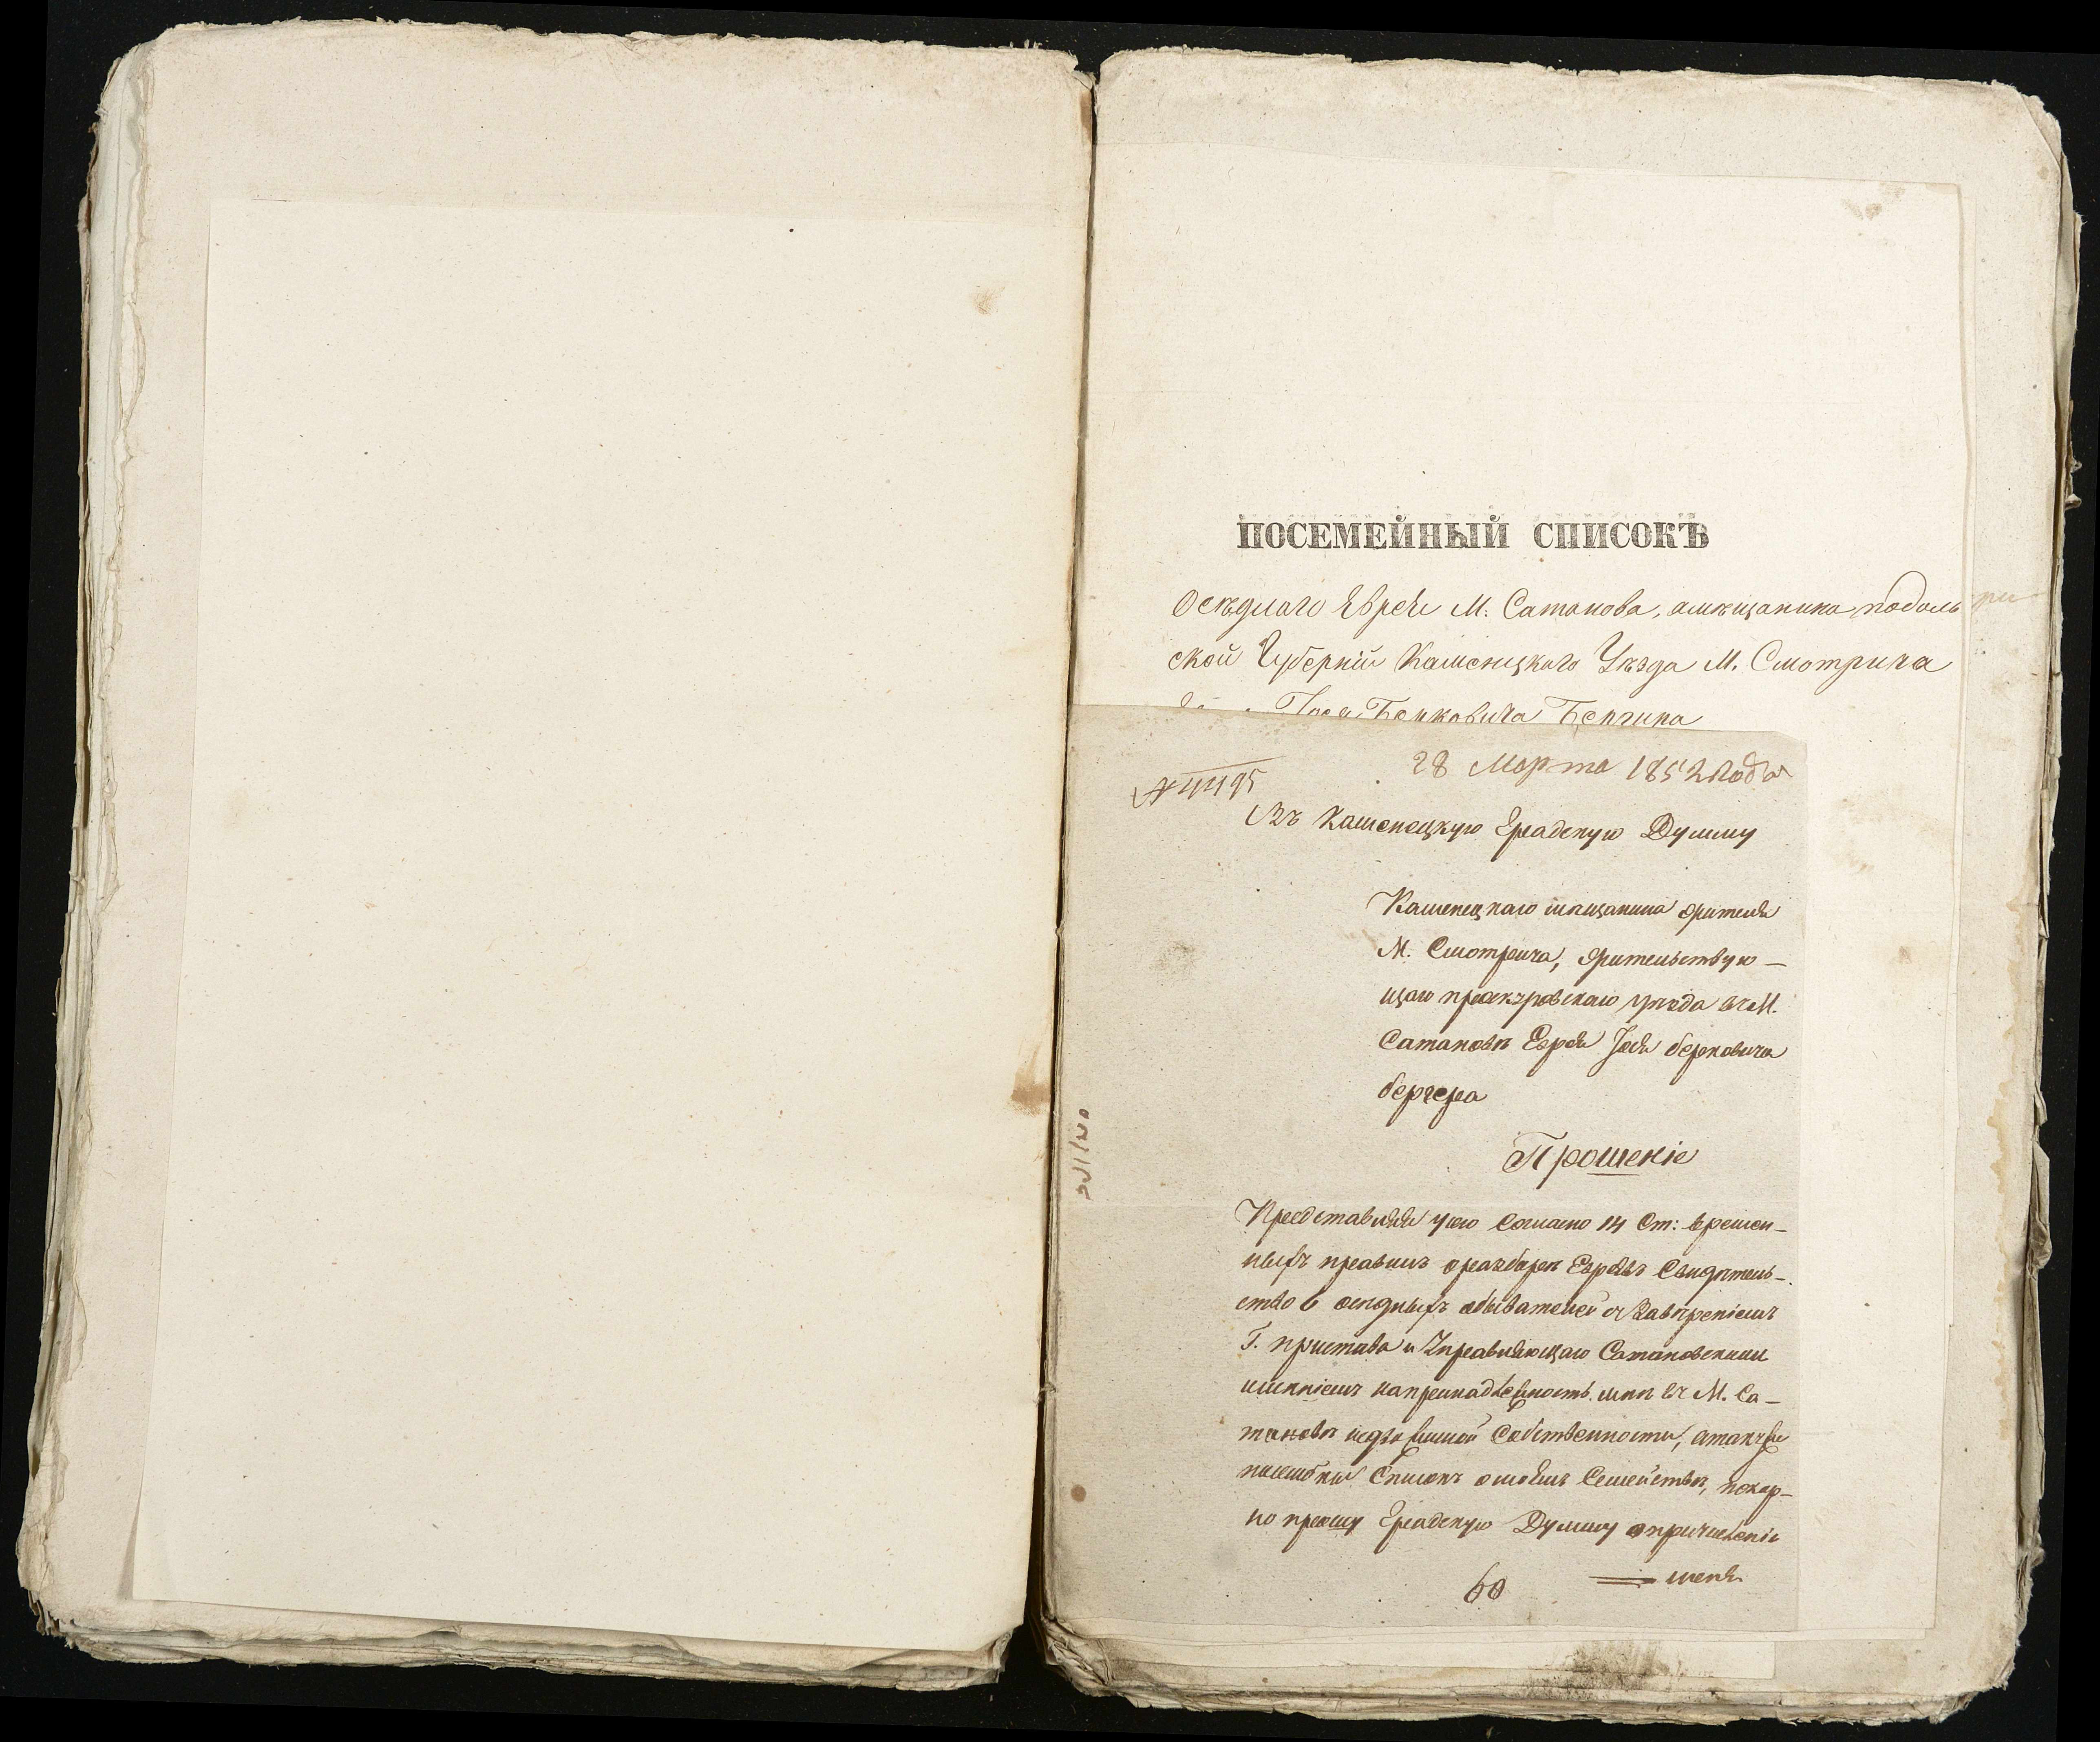 ПОСЕМЕЙНЫЙ СПИСОКЪ
Осѣдлаго Еврея М. Сатанова, а мѣщанина подоль
ской Губерніи Каменецкаго Уѣзда М. Смотрича
Іося Берковича Бергира
28 Марта 1852 Года
№ 4495
Въ Каменецкую Градскую Думму
Каменецкаго мѣщанина жителя
М. Смотрича, жительствую-
щаго проскуровскаго уѣзда въ М.
Сатановѣ Еврея Іося берковича
бергера
Прошеніе
Представляя у сего Согласно 14 Ст: времен-
ныхъ правилъ о разборѣ Евреевъ Свидѣтель-
ство 6 осѣдлыхъ обывателей съ Завѣреніемъ
Г. пристава и Управляющаго Сатановскимъ
имѣніемъ на принадлежность мнѣ въ М. Са-
тановѣ недвижимой Собственности, а такъже
Списокъ о моемъ Семействѣ, покор-
но прошу Градскую Думму о причисленіи
меня
60